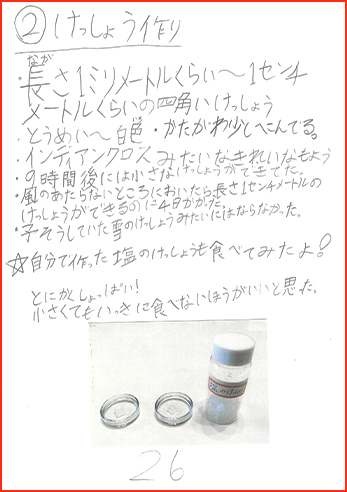 ②けっしょう作り
なが
・長さ1ミリメートルくらい〜1センチ
メートルくらいの四角いけっしょう
・とうめい〜白色・かたがわ少しへこんでる。
・インディアンクロスみたいなきれいなもよう
・9時間後には小さなけっしょうができてた。
・風のあたらないところにおいたら長さ1センチメートルの
けっしょうができるのに4日かかった。
・予そうしていた雪のけっしょうみたいにはならなかった。
☆自分で作った塩のけっしょうも食べてみたよ!
とにかくしょっぱい!
小さくてもいっきに食べないほうがいいと思った。
26